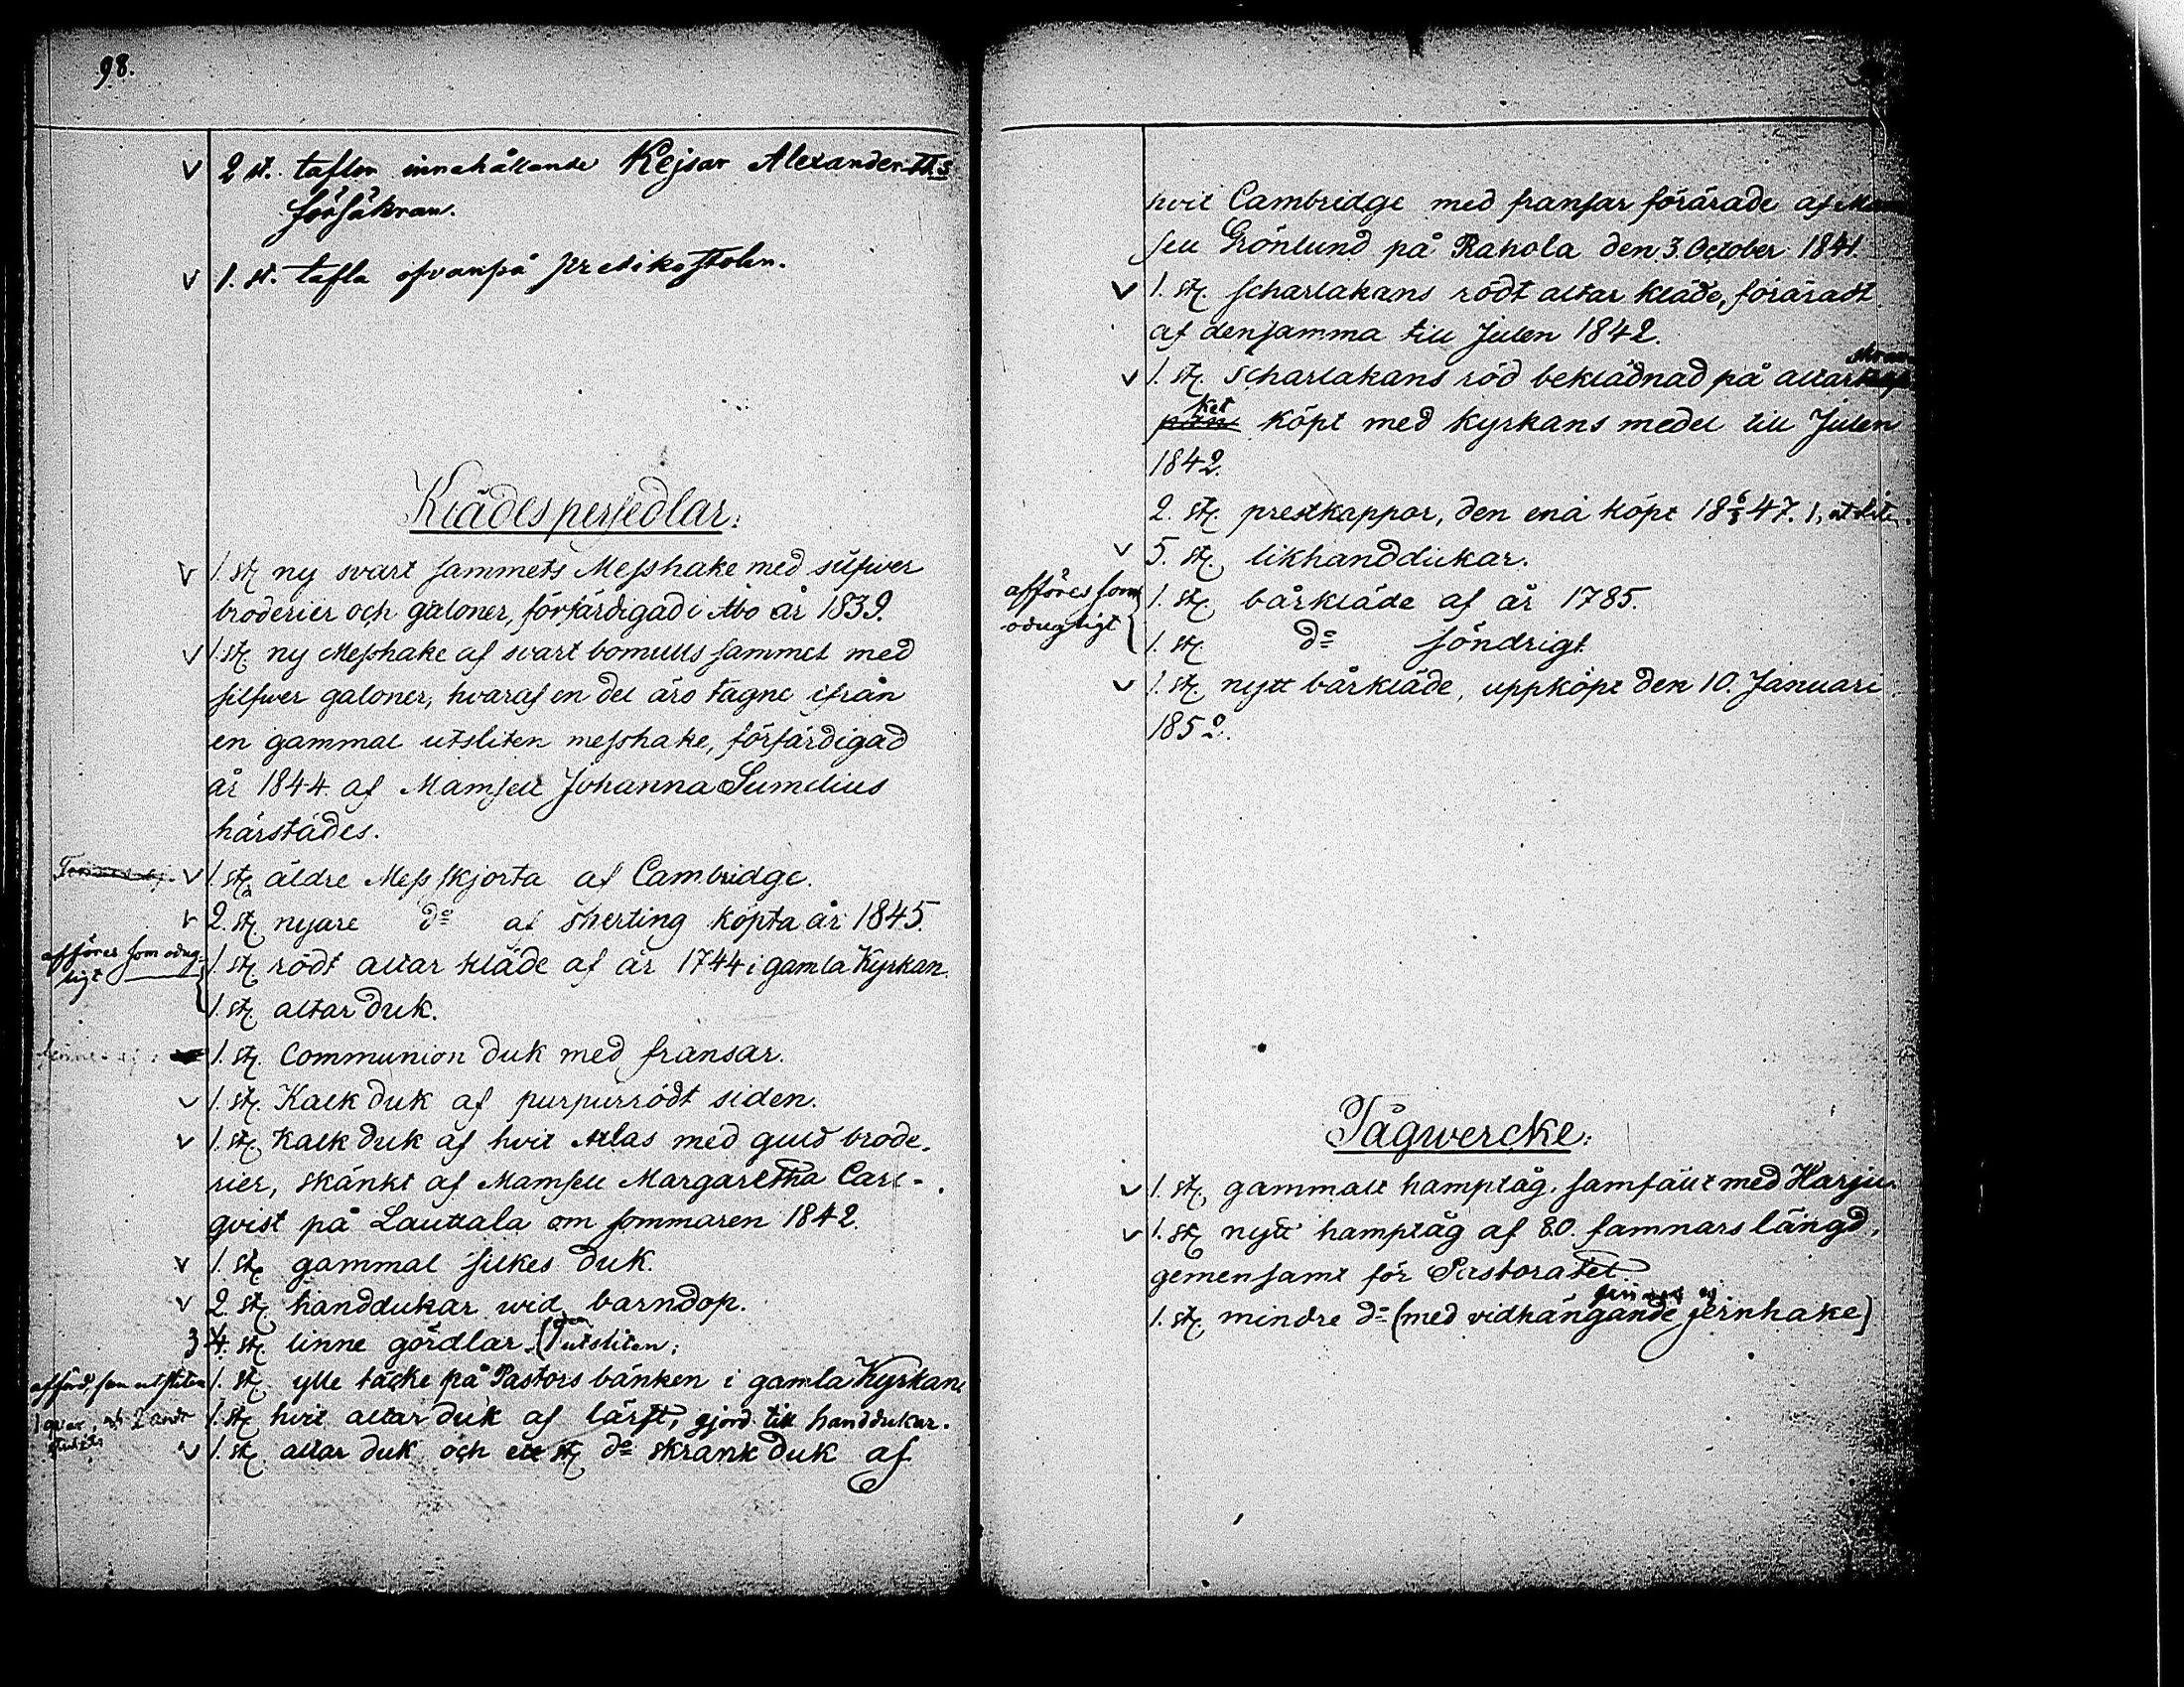 98.
v 2 st. taflor innehållande Kejsar Alexander Is
försäkran.
v 1. st. tafla ofvanpå predikostolen.
Klädespersedlar:
v 1. st. ny svart sammets Messhake med silfwer
broderier och galoner, förfärdigad i Åbo år 1839.
v 1. st. ny Messhake af svart bomulls sammet med
silfwer galoner, hvaraf en del äro tagne ifrån
en gammal utsliten messhake, förfärdigad
år 1844 af Mamsell Johanna Sumelius
härstädes.
v 1. st. äldre Mess skjorta af Cambridge.
v 2. st. nyare do af sherting köpta år 1845.
afföres som odug- 1. st. rödt altar kläde af år 1744 i gamla Kyrkan.
ligt
1. st. altar duk.
1. st. Communion duk med fransar.
v 1. st. Kalk duk af purpurrödt siden.
v 1. st. Kalk duk af hvit Atlas med guld brode-
rier, skänkt af Mamsell Margaretha Carl-
qvist på Lauttala om sommaren 1842.
v 1. st. gammal silkes duk.
v 2. st. handdukar wid barndop.
3 4. st. linne gördlar. (1 utsliten.
afförd, som utsliten 1. st. ylle täcke på Pastors bänken i gamla Kyrkan.
1. st. hvit altar duk af lärft, gjord till handdukar.
v 1. st. altar duk och ett st. do skrank duk af
hvit Cambridge med fransar förärade af Mam
sell Grönlund på Rahola den 3. October 1841.
v 1. st. scharlakans rödt altar kläde, föräradt
af densamma till Julen 1842.
v 1. st. scharlakans röd beklädnad på altar
ket köpt med kyrkans medel till Julen
1842.
2. st. prestkappor, den ena köpt 18 6/3 47. 1, utsliten.
v 5. st. likhanddukar.
afföres som 1. st. bårkläde af år 1785.
odugligt 1. st. do söndrigt
v 1. st. nytt bårkläde, uppköpt den 10. Januari
1852.
Tågwercke:
v 1. st. gammalt hamptåg. samfält med Harju
v 1. st. nytt hamptåg af 80. famnars längd,
gemensamt för Pastoratet
finnes ej
1. st. mindre do (med vidhängande jernhake)